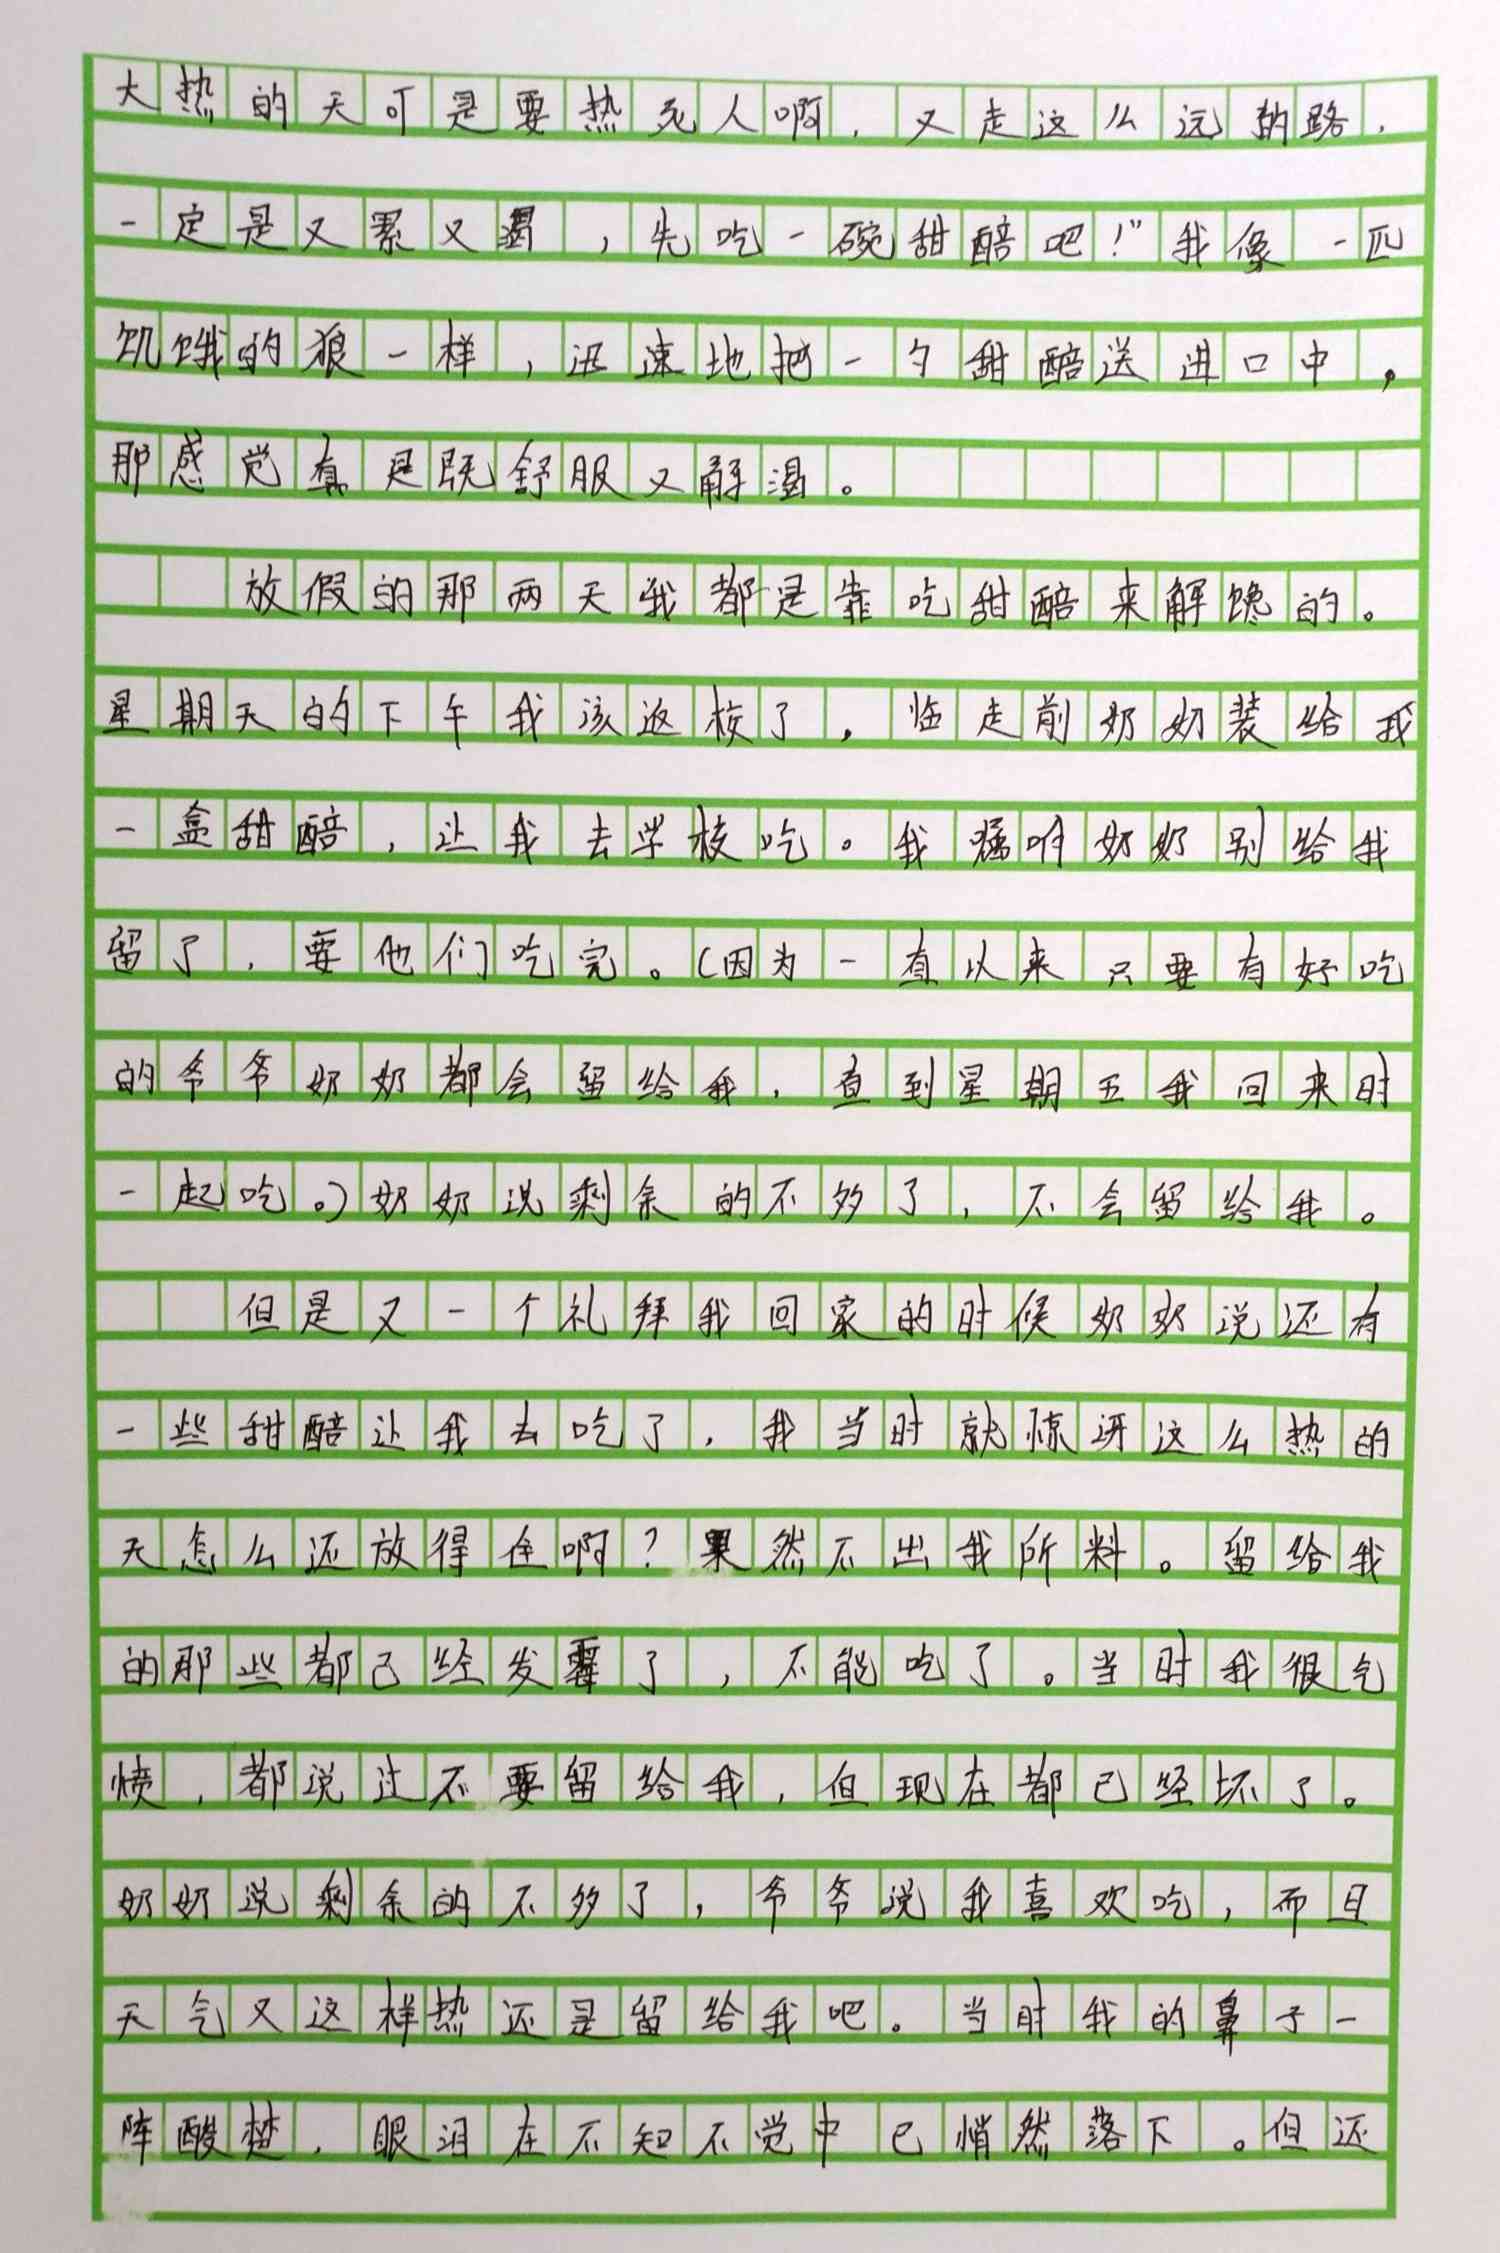 大热的天可是要热死人啊，又走这么远的路，
一定是又累又渴，先吃一碗甜醅吧！”我像一匹
饥饿的狼一样，迅速地把一勺甜醅送进口中，
那感觉真是既舒服又解渴。
放假的那两天我都是靠吃甜醅来解馋的。
星期天的下午我该返校了，临走前奶奶装给我
一盒甜醅，让我去学校吃。我嘱咐奶奶别给我
留了，要他们吃完。（因为一直以来只要有好吃
的爷爷奶奶都会留给我，直到星期五我回来时
一起吃。）奶奶说剩余的不多了，不会留给我。
但是又一个礼拜我回家的时候奶奶说还有
一些甜醅让我去吃了，我当时就惊讶这么热的
天怎么还放得住啊？果然不出我所料。留给我
的那些都已经发霉了，不能吃了。当时我很气
愤，都说过不要留给我，但现在都已经坏了。
奶奶说剩余的不多了，爷爷说我喜欢吃，而且
天气又这样热还是留给我吧。当时我的鼻子一
阵酸楚，眼泪在不知不觉中已悄然落下。但还